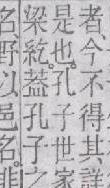 者今不得其詳
是也孔子世家
梁紇葢孔子之
名野以邑名非